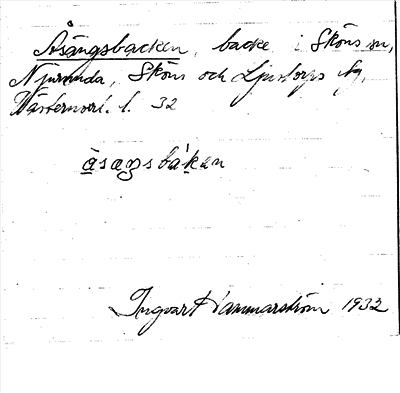 Åsängsbacken, backe i Sköns sn,
Njurunda, Sköns och Ljustorps tg,
Västernorrl. l. 32
åsaŋsbákan
Ingvar Hammarström 1932